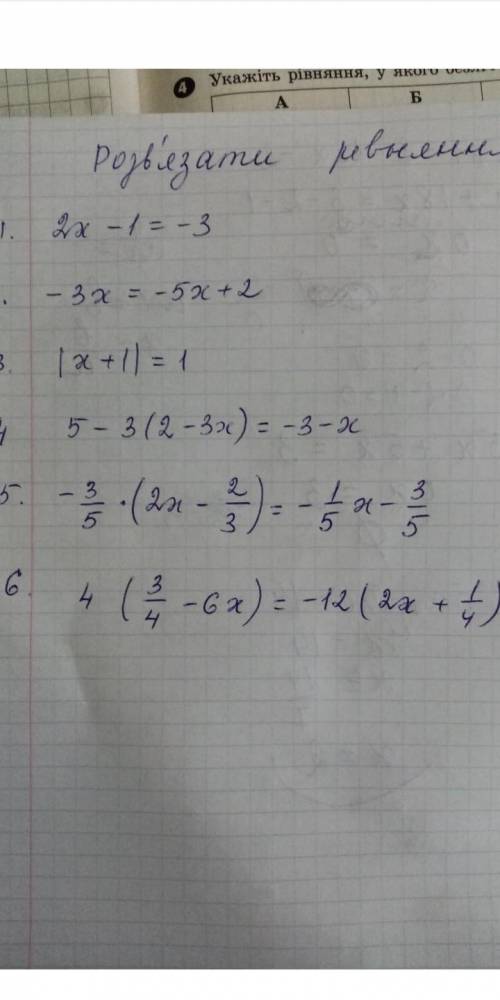 4 Укажіть рівняння, у якого безлі
А Б
Розв'язати рівнянн
1. 2x - 1 = -3
. -3x = -5x + 2
3. |x + 1| = 1
4 5 - 3(2 - 3x) = -3 - x
5. -3/5 · (2x - 2/3) = -1/5 x - 3/5
6. 4 (3/4 - 6x) = -12 (2x + 1/4)